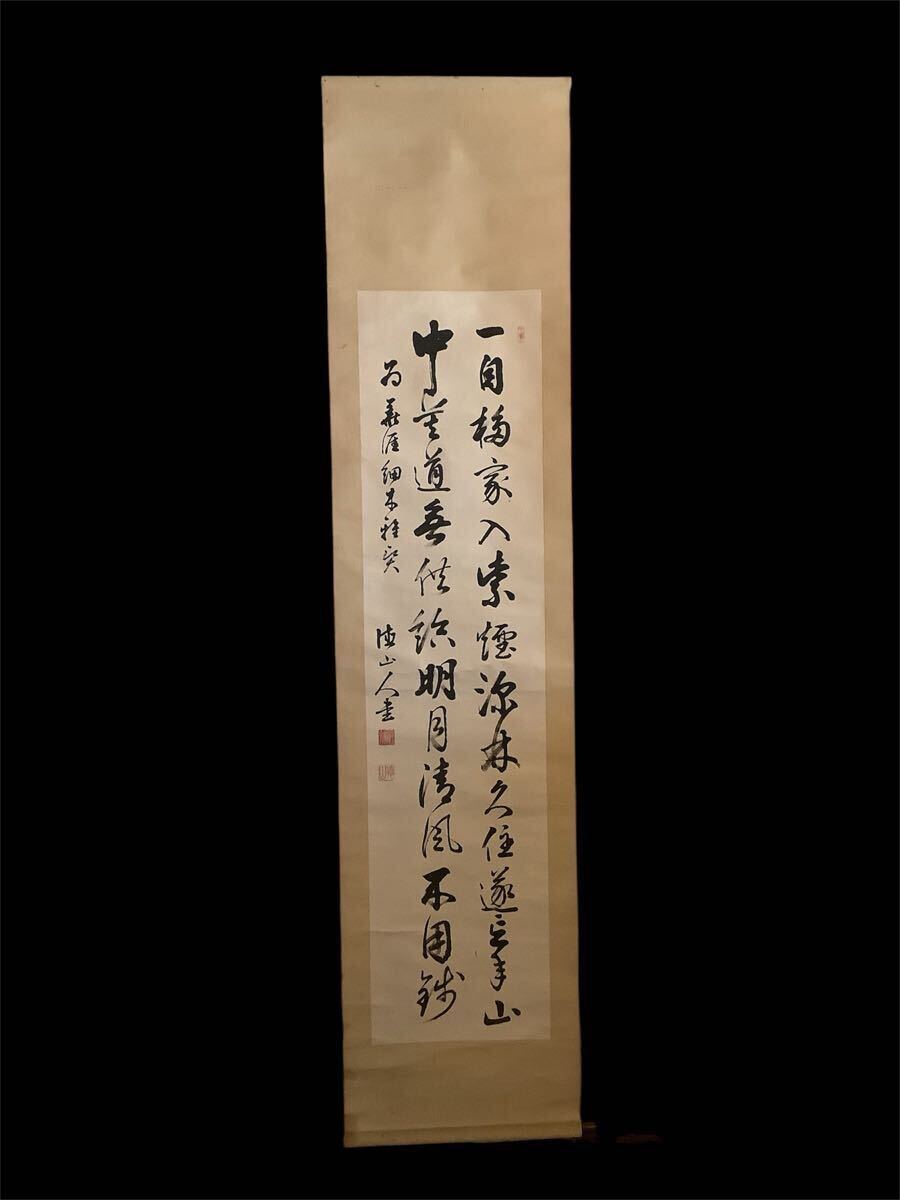 一自移家入紫煙深林久住遂忘年山
中莫道無供給明月清風不用錢
為 細木雅契 山人書